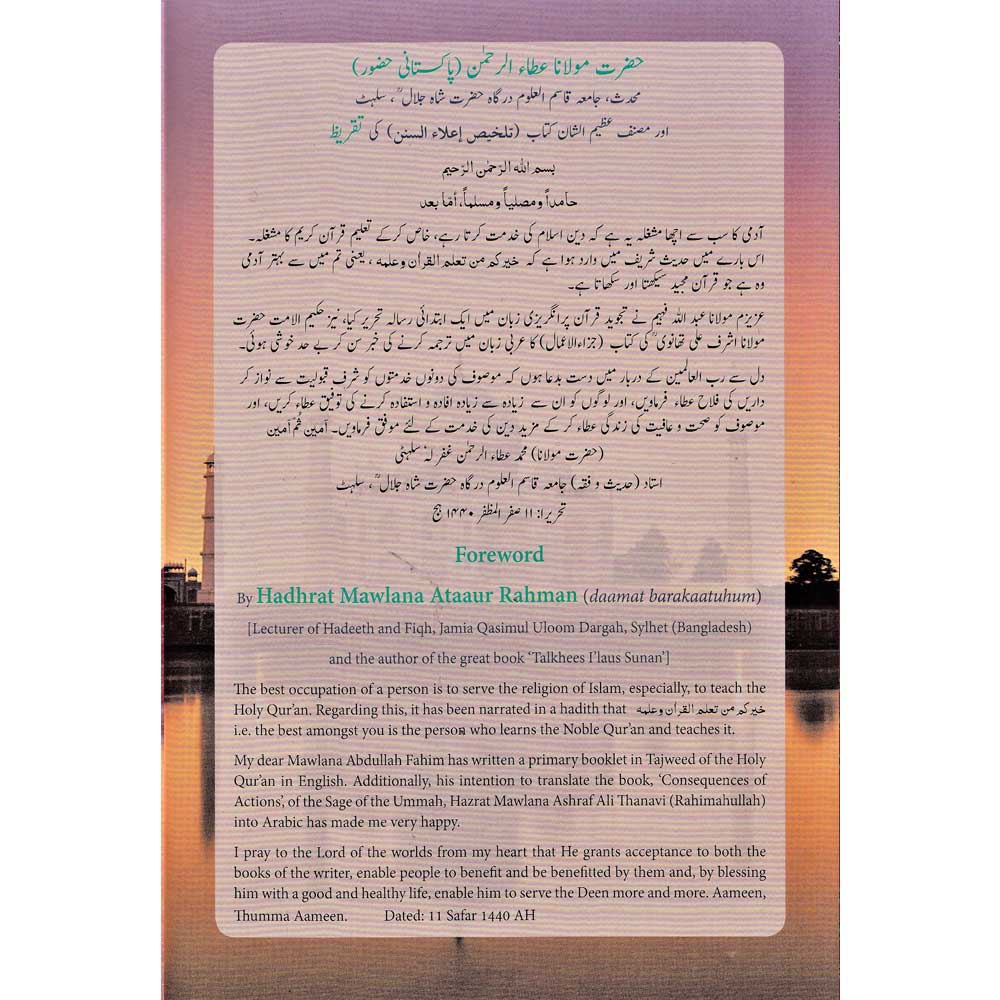 حضرت مولانا عطاء الرحمٰن (پاکستانی حضور)
محدث، جامعہ قاسم العلوم درگاہ حضرت شاہ جلالؒ، سلہٹ
اور مصنف عظیم الشان کتاب (تلخیص إعلاء السنن) کی تقریظ
بسم الله الرّحمٰن الرّحيم
حامداً ومصلياً ومسلماً، أمّا بعد
آدمی کا سب سے اچھا مشغلہ یہ ہے کہ دین اسلام کی خدمت کرتا رہے، خاص کرکے تعلیم قرآن کریم کا مشغلہ۔
اس بارے میں حدیث شریف میں وارد ہوا ہے کہ خیرکم من تعلم القرآن وعلمه ، یعنی تم میں سے بہتر آدمی
وہ ہے جو قرآن مجید سیکھتا اور سکھاتا ہے۔
عزیزم مولانا عبد اللہ فہیم نے تجوید قرآن پر انگریزی زبان میں ایک ابتدائی رسالہ تحریر کیا، نیز حکیم الامت حضرت
مولانا اشرف علی تھانویؒ کی کتاب (جزاء الاعمال) کا عربی زبان میں ترجمہ کرنے کی خبر سن کر بے حد خوشی ہوئی۔
دل سے رب العالمین کے دربار میں دست بدعا ہوں کہ موصوف کی دونوں خدمتوں کو شرف قبولیت سے نواز کر
دارین کی فلاح عطاء فرماویں، اور لوگوں کو ان سے زیادہ سے زیادہ افادہ و استفادہ کرنے کی توفیق عطاء کریں، اور
موصوف کو صحت و عافیت کی زندگی عطاء کر کے مزید دین کی خدمت کے لئے موفق فرماویں۔ آمین ثم آمین
(حضرت مولانا) محمد عطاء الرحمٰن غفر لہٗ سلہٹی
استاد (حدیث و فقہ) جامعہ قاسم العلوم درگاہ حضرت شاہ جلالؒ، سلہٹ
تحریرا: ۱۱ صفر المظفر ۱۴۴۰ ہج
Foreword
By Hadhrat Mawlana Ataaur Rahman (daamat barakaatuhum)
[Lecturer of Hadeeth and Fiqh, Jamia Qasimul Uloom Dargah, Sylhet (Bangladesh)
and the author of the great book ‘Talkhees I’laus Sunan’]
The best occupation of a person is to serve the religion of Islam, especially, to teach the
Holy Qur’an. Regarding this, it has been narrated in a hadith that خیرکم من تعلم القرآن وعلمه
i.e. the best amongst you is the person who learns the Noble Qur’an and teaches it.
My dear Mawlana Abdullah Fahim has written a primary booklet in Tajweed of the Holy
Qur’an in English. Additionally, his intention to translate the book, ‘Consequences of
Actions’, of the Sage of the Ummah, Hazrat Mawlana Ashraf Ali Thanavi (Rahimahullah)
into Arabic has made me very happy.
I pray to the Lord of the worlds from my heart that He grants acceptance to both the
books of the writer, enable people to benefit and be benefitted by them and, by blessing
him with a good and healthy life, enable him to serve the Deen more and more. Aameen,
Thumma Aameen. Dated: 11 Safar 1440 AH